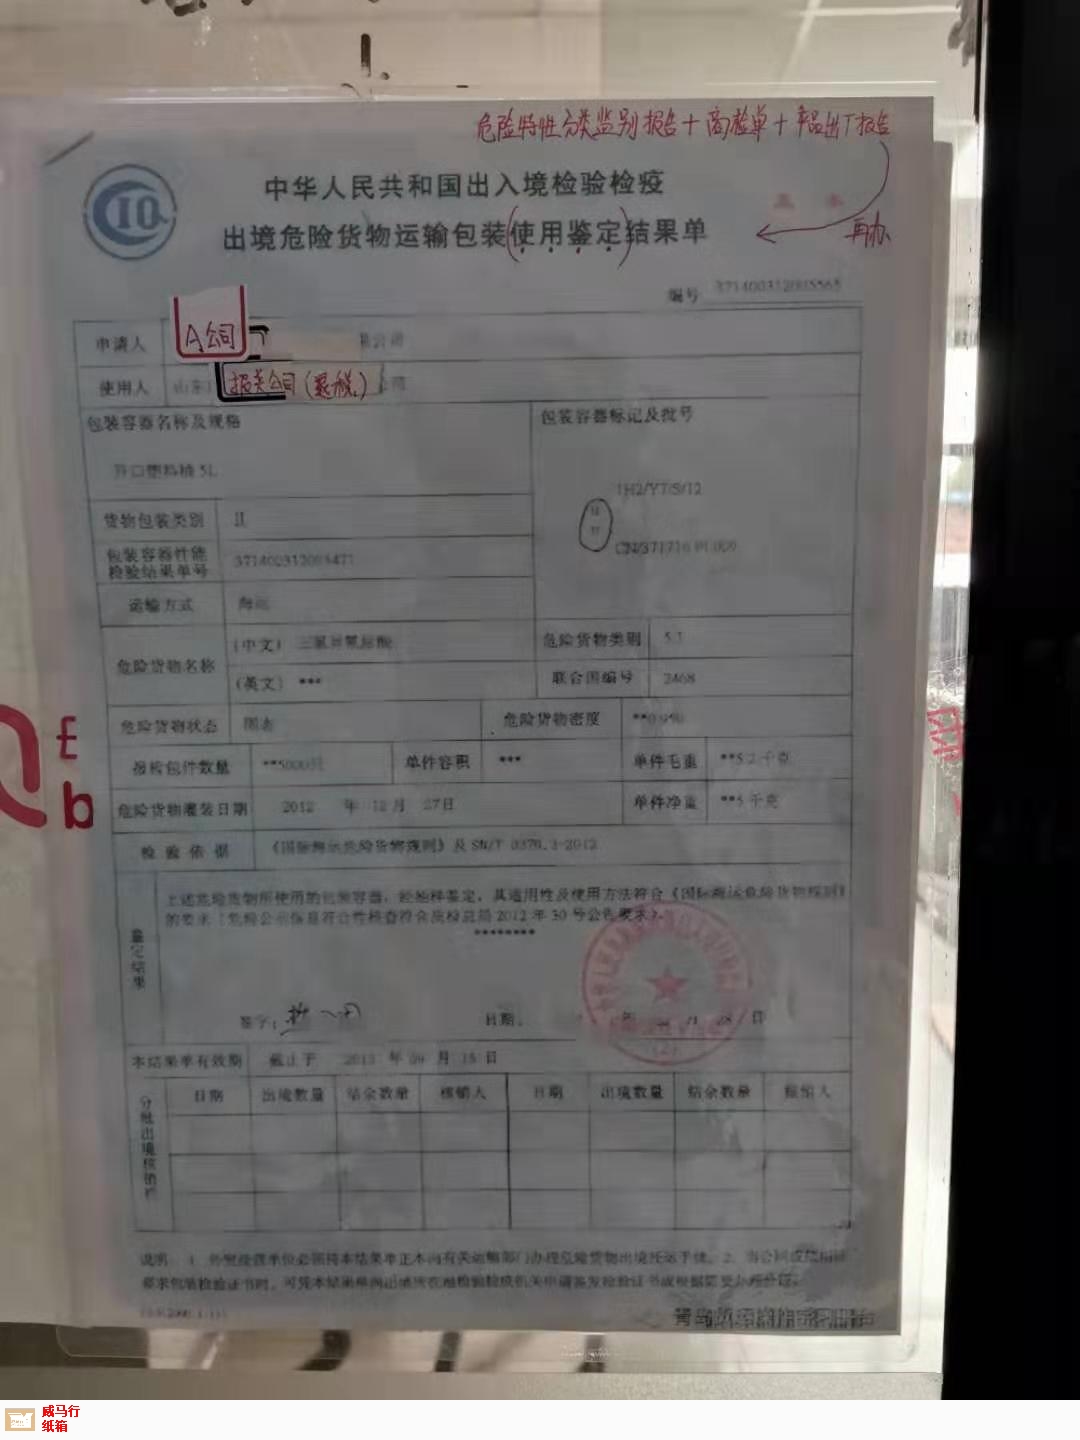 危险特性分类监别报告+商检单+产品出厂报告
CIQ
中华人民共和国出入境检验检疫
出境危险货物运输包装(使用鉴定)结果单
再办
编号
申请人 A公司 公司
使用人 山东 报关公司(退税)
包装容器名称及规格
包装容器标记及批号
开口塑料桶 5L
1H2/Y7/S/12
货物包装类别 II
包装容器性能
检验结果单号
运输方式 海运
危险货物名称
(中文) 三氯异氰尿酸
(英文) ***
危险货物类别 5.1
联合国编号 2468
危险货物状态 固态
危险货物密度
报检包件数量 **5000只
单件容积 ***
单件毛重 **5.2 千克
危险货物灌装日期 2012 年 12 月 27日
单件净重 **5 千克
检验依据 《国际海运危险货物规则》及 SN/T 0370.3-2012
鉴定结果
上述危险货物所使用的包装容器,经抽样鉴定,其适用性及使用方法符合《国际海运危险货物规则》
的要求(危险公示信息符合性核查符合质检总局 2012 年 30 号公告要求)。
********
签字:
日期:
本结果单有效期 截止于 2013 年 09 月 15 日
分批出境核销栏
日期 出境数量 结余数量 核销人 日期 出境数量 结余数量 核销人
说明: 1. 外贸经营单位必须持本结果单正本向有关运输部门办理危险货物出境托运手续。2.
E
b
威马行
纸箱